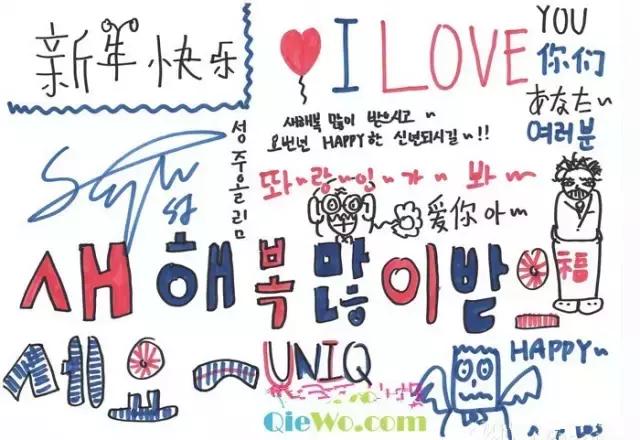 新年快乐
I LOVE
YOU
你们
あなた~
여러분
새해복 많이 받으시고~
오번년 HAPPY한 신년되시길~!!
성주올림
똬~랑~잉~가~봐~
爱你 아~
福
새해복 많이 받으
세요~
UNIQ
HAPPY~
QieWo.com